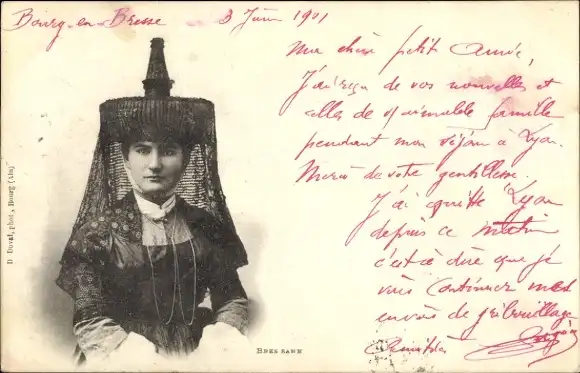 Bourg-en-Bresse 3 Juin 1901
Mon cher petit Année,
J'ai reçu de vos nouvelles et
celles de v/aimable famille
pendant mon séjour à Lyon.
Merci de votre gentillesse.
J'ai quitté Lyon
depuis ce matin
c'est à dire que je
vais continuer mes
envois de gribouillage
Amitiés
D. Duval, phot., Bourg (Ain)
BRESSANE